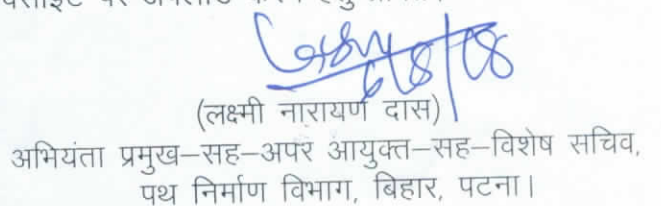 6/8/08
(लक्ष्मी नारायण दास)
अभियंता प्रमुख–सह–अपर आयुक्त–सह–विशेष सचिव,
पथ निर्माण विभाग, बिहार, पटना।